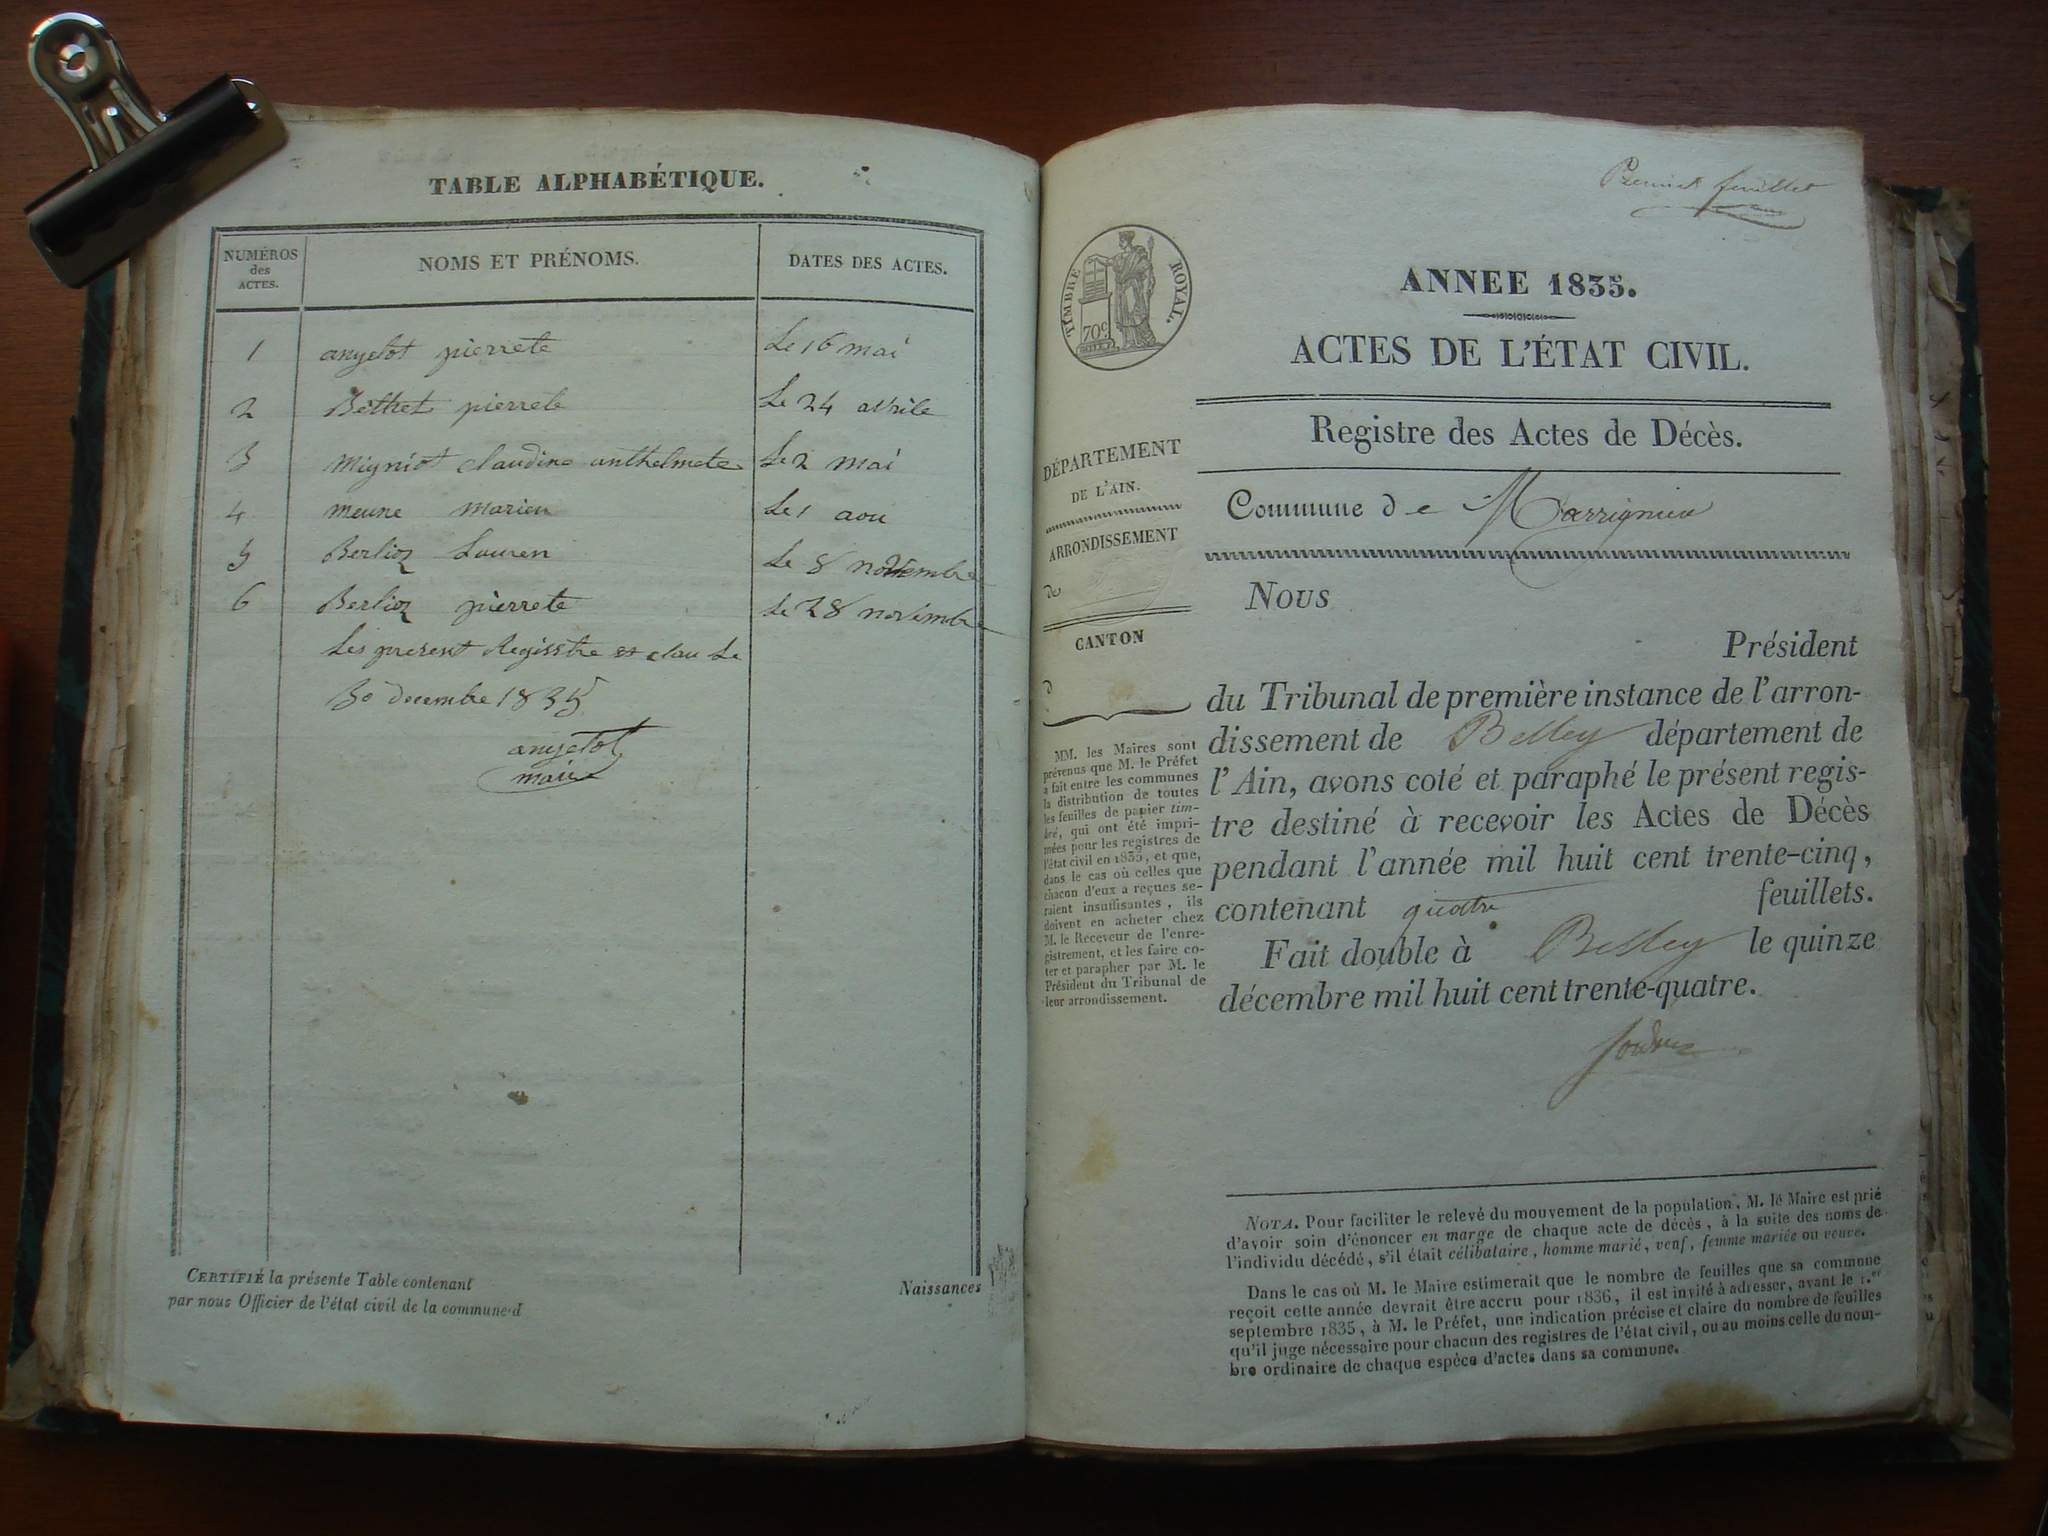 TABLE ALPHABÉTIQUE.
NUMÉROS
des
ACTES.
NOMS ET PRÉNOMS.
DATES DES ACTES.
1 angelot pierrete Le 16 mai
2 Béthet pierrete Le 24 avrile
3 Migniot claudine anthelmete Le 2 mai
4 meune marien Le 1 aou
5 Berlioz Lauren Le 8 novembre
6 Berlioz pierrete Le 28 novembre
Les present Regisstre et clau Le
30 decembre 1835
angelot
maire
CERTIFIÉ la présente Table contenant
par nous Officier de l'état civil de la commune d
Naissances
Premier feuillet
TIMBRE ROYAL.
70c
ANNEE 1835.
ACTES DE L'ÉTAT CIVIL.
Registre des Actes de Décès.
DÉPARTEMENT
DE L'AIN.
ARRONDISSEMENT
de
CANTON
d
MM. les Maires sont
prévenus que M. le Préfet
a fait entre les communes
la distribution de toutes
les feuilles de papier tim-
bré, qui ont été impri-
mées pour les registres de
l'état civil en 1835, et que,
dans le cas où celles que
chacun d'eux a reçues se-
raient insuffisantes, ils
doivent en acheter chez
M. le Receveur de l'enre-
gistrement, et les faire co-
ter et parapher par M. le
Président du Tribunal de
leur arrondissement.
Commune de Marrignieu
Nous
Président
du Tribunal de première instance de l'arron-
dissement de Belley département de
l'Ain, avons coté et paraphé le présent regis-
tre destiné à recevoir les Actes de Décès
pendant l'année mil huit cent trente-cinq,
contenant quatre feuillets.
Fait double à Belley le quinze
décembre mil huit cent trente-quatre.
NOTA. Pour faciliter le relevé du mouvement de la population, M. le Maire est prié
d'avoir soin d'énoncer en marge de chaque acte de décès, à la suite des noms de
l'individu décédé, s'il était célibataire, homme marié, veuf, femme mariée ou veuve.
Dans le cas où M. le Maire estimerait que le nombre de feuilles que sa commune
reçoit cette année devrait être accru pour 1836, il est invité à adresser, avant le 1.er
septembre 1835, à M. le Préfet, une indication précise et claire du nombre de feuilles
qu'il juge nécessaire pour chacun des registres de l'état civil, ou au moins celle du nom-
bre ordinaire de chaque espèce d'actes dans sa commune.